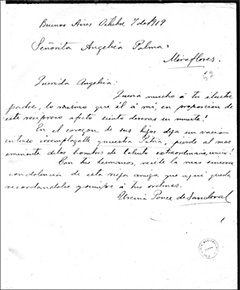 Buenos Aires Octubre 7 de 1919
Señorita Angélica Palma.
Miraflores.
Querida Angélica:
Quería mucho á tu ilustre
padre, lo mismo que él á mí; en proporción de
este recíproco afecto siento su muerte!
En el corazon de sus hijos deja un vacío
y nuestra Patria, pierde al mas
eminente de los hombres de talento extraordinario,
Con tus hermanos, recibe la mas sincera
condolencia de esta vieja amiga que aquí queda
recordandoles y á tus ordenes.
Ponce de Sandoval